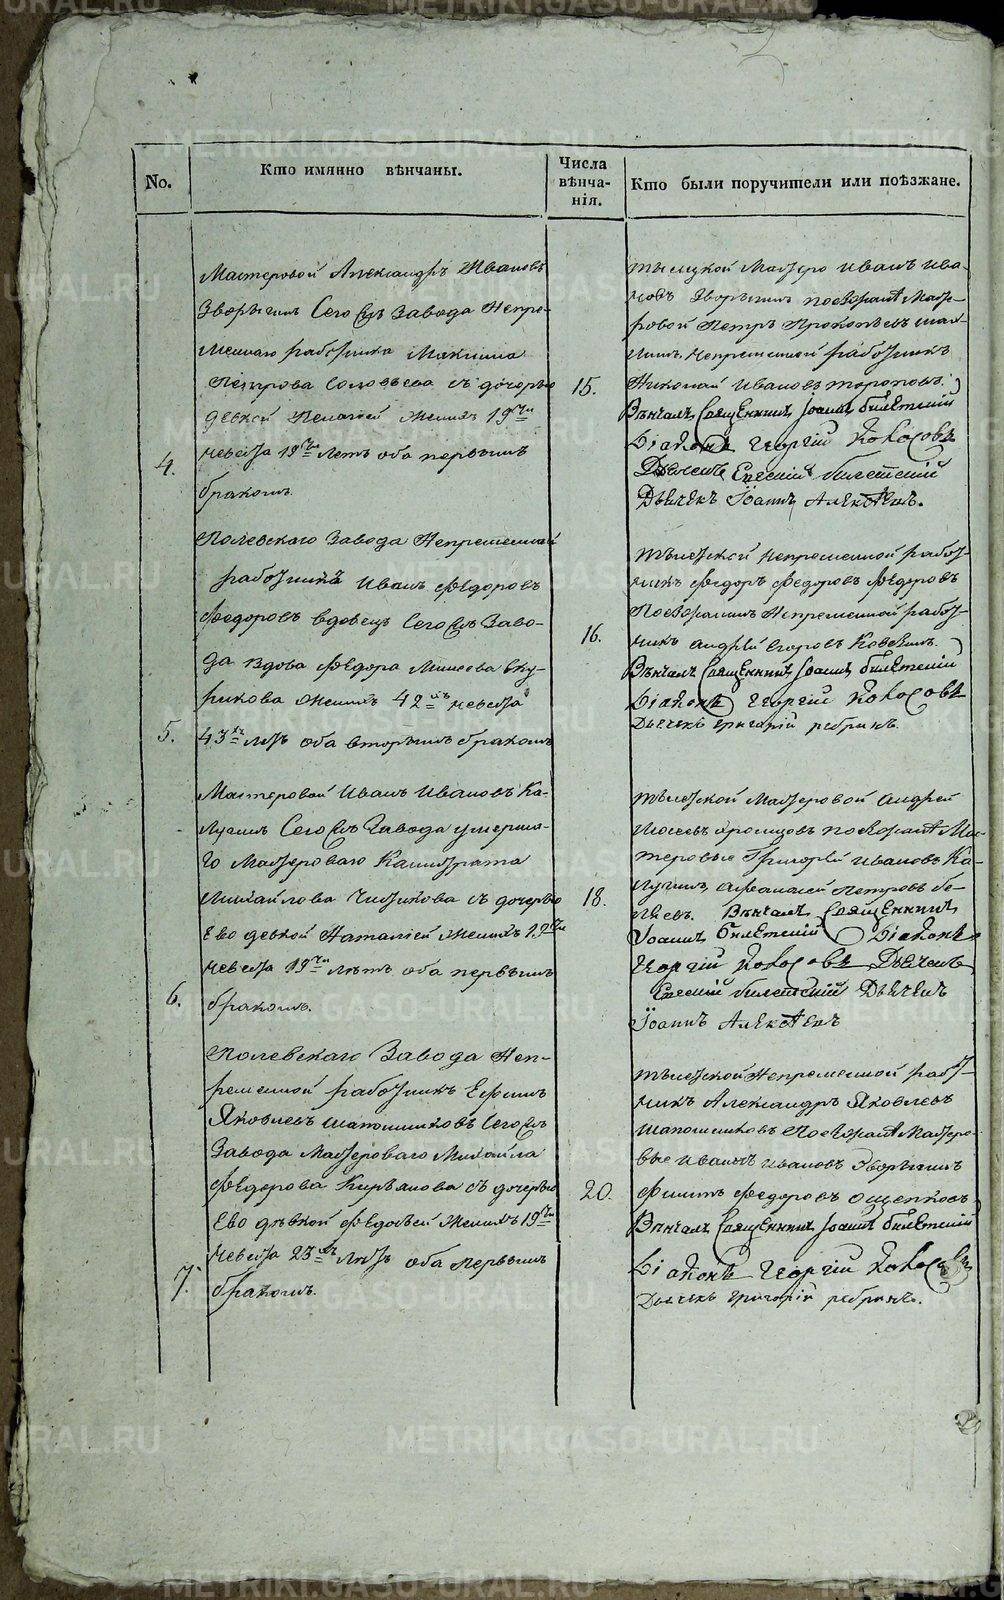 No.
Кто имянно вѣнчаны.
Числа
вѣнча-
нія.
Кто были поручители или поѣзжане.
Мастеровой Александръ Ивановъ
Зворыгинъ Сего Завода Непре-
меннаго работника Максима
Петрова Соловьева съ дочерью
девкой Пелагіей жениху 19
невеста 19 летъ оба первымъ
4.
бракомъ.
15.
тысяцкой Мастеро Иванъ Ива-
новъ Зворыгинъ поезжанъ Масте-
ровой Петръ Прокопьевъ
непременной работникъ
Николай Ивановъ
Вѣнчалъ Священникъ Іоаннъ Билетскій
Діаконъ Георгій Колосовъ
Дьячекъ Евгеній Билетскій
Дьячекъ Іоаннъ Алексѣевъ.
Полевскаго Завода Непременной
работникъ Иванъ Федоровъ
Федоровъ вдовецъ Сего Заво-
да вдова Федора Мисеева
женихъ 42 невеста
5.
43 летъ оба вторымъ бракомъ
16.
тысяцкой непременной работ-
никъ Федоръ Федоровъ Федоровъ
Поезжанинъ Непременной работ-
никъ Андрей Егоровъ
Вѣнчалъ Священникъ Іоаннъ Билетскій
Діаконъ Георгій Колосовъ
Дьячекъ Григорій Ребринъ.
Мастеровой Иванъ Ивановъ Ка-
лугинъ Сего Завода умерша-
го Мастероваго Калистрата
Михайлова съ дочерью
Ево девкой Наталіей женихъ 19
невеста 19 летъ оба первымъ
6.
бракомъ.
18.
тысяцкой Мастеровой Андрей
Мосеевъ поезжанъ Мас-
теровые Григорей Ивановъ Ка-
лугинъ, Афанасей Петровъ Бе-
ляевъ. Вѣнчалъ Священникъ
Іоаннъ Билетскій Діаконъ
Георгій Колосовъ Дьячекъ
Евгеній Билетскій Дьячекъ
Іоаннъ Алексѣевъ
Полевскаго Завода Неп-
ременной работникъ Ефимъ
Яковлевъ Шапошниковъ Сего
Завода Мастероваго Михайла
Федорова Кирьянова съ дочерью
Ево девкой Федосьей женихъ 19
невеста 23 летъ оба первымъ
7.
бракомъ.
20.
тысяцкой Непременной работ-
никъ Александръ Яковлевъ
Шапошниковъ Поезжанъ Мастеро-
вые Иванъ Ивановъ Зворыгинъ
Филипъ Федоровъ Ощепковъ
Вѣнчалъ Священникъ Іоаннъ Билетскій
Діаконъ Георгій Колосовъ
Дьячекъ Григорій Ребринъ.
METRIKI.GASO-URAL.RU